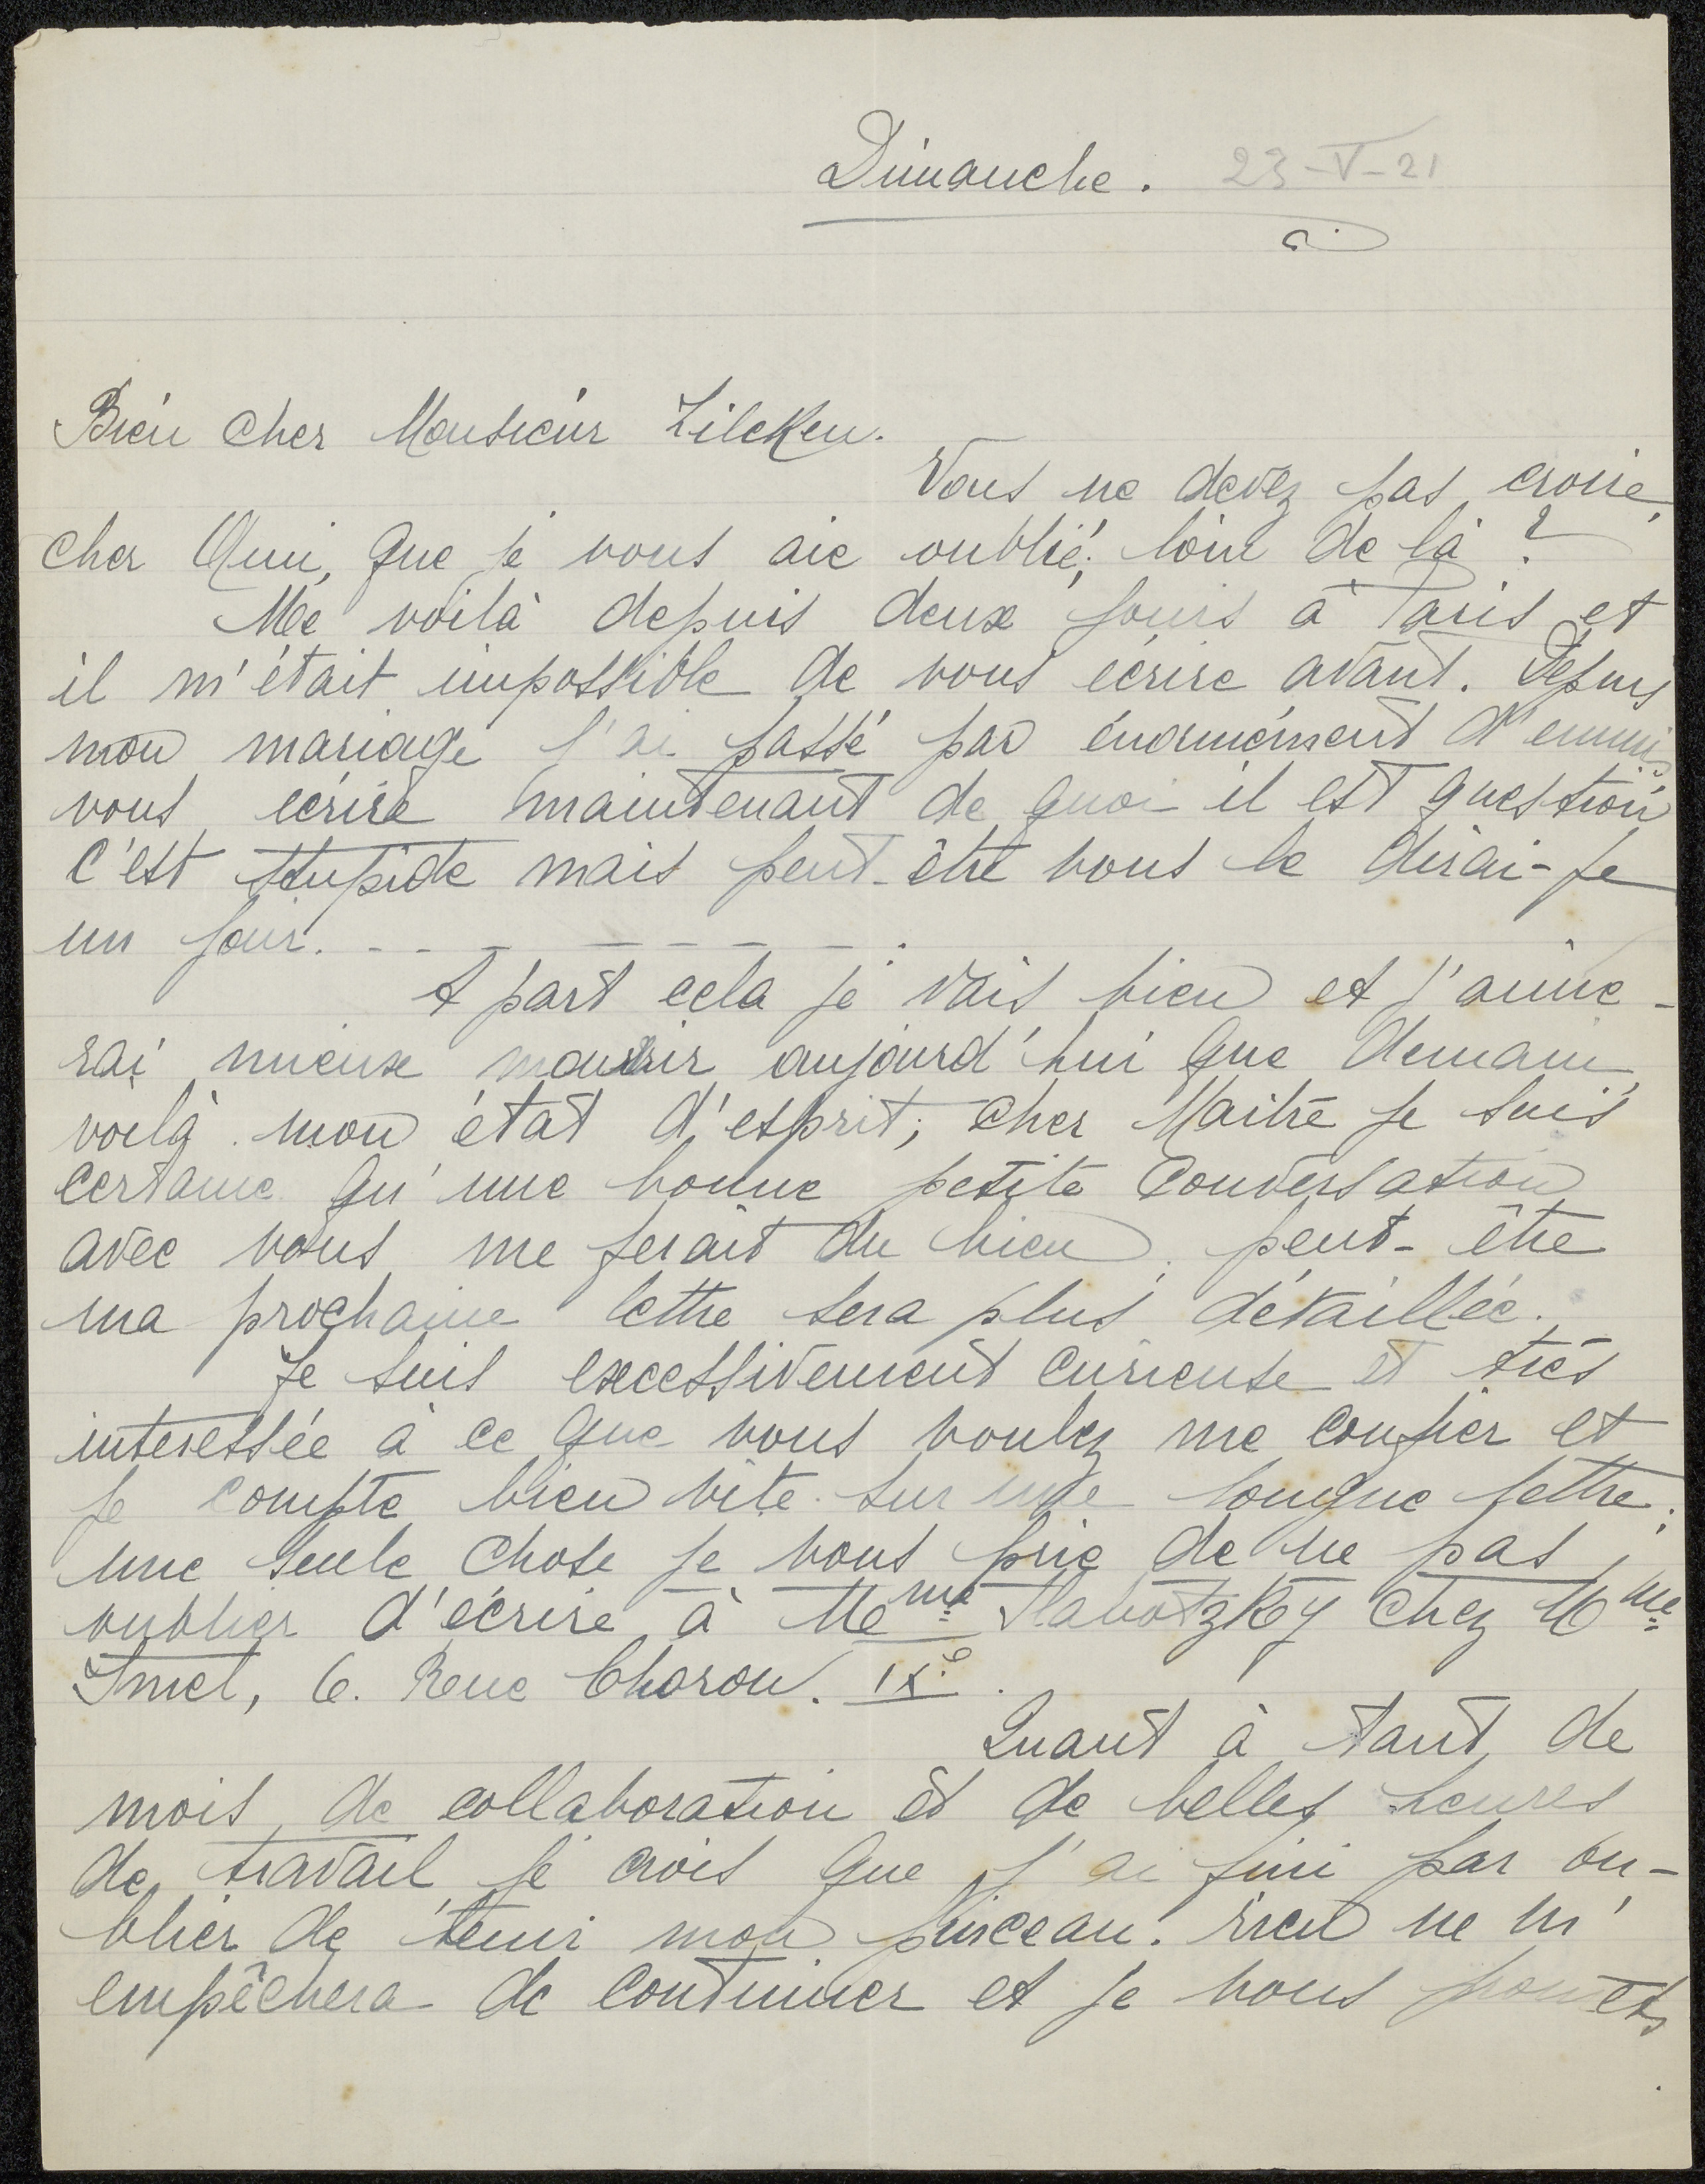 Dimanche. 23-V-21
Bien cher Monsieur Zilcken.
Vous ne devez pas croire,
cher Ami, que je vous aie oublié; loin de là !
Me voilà depuis deux jours à Paris et
il m'était impossible de vous écrire avant. Depuis
mon mariage j'ai passé par énormément d'ennuis
vous écrire maintenant de quoi il est question
c'est stupide mais peut-être vous le dirai-je
un jour. - - - - - - - .
A part cela je vais bien et j'aime-
rai mieux mourir aujourd'hui que demain,
voilà mon état d'esprit; cher Maître je suis
certaine qu'une bonne petite conversation
avec vous me ferait du bien, peut-être
ma prochaine lettre sera plus détaillée.
Je suis excessivement curieuse et très
interessée à ce que vous voulez me confier et
je compte bien vite sur une longue lettre;
une seule chose je vous prie de ne pas
oublier d'écrire à Mme chez Mme
Smel, 6. Rue Choron. IXe.
Quant à tant de
mois de collaboration et de belles heures
de travail je crois que j'ai fini par ou-
blier de tenir mon pinceau. rien ne m'
empêchera de continuer et je vous promets